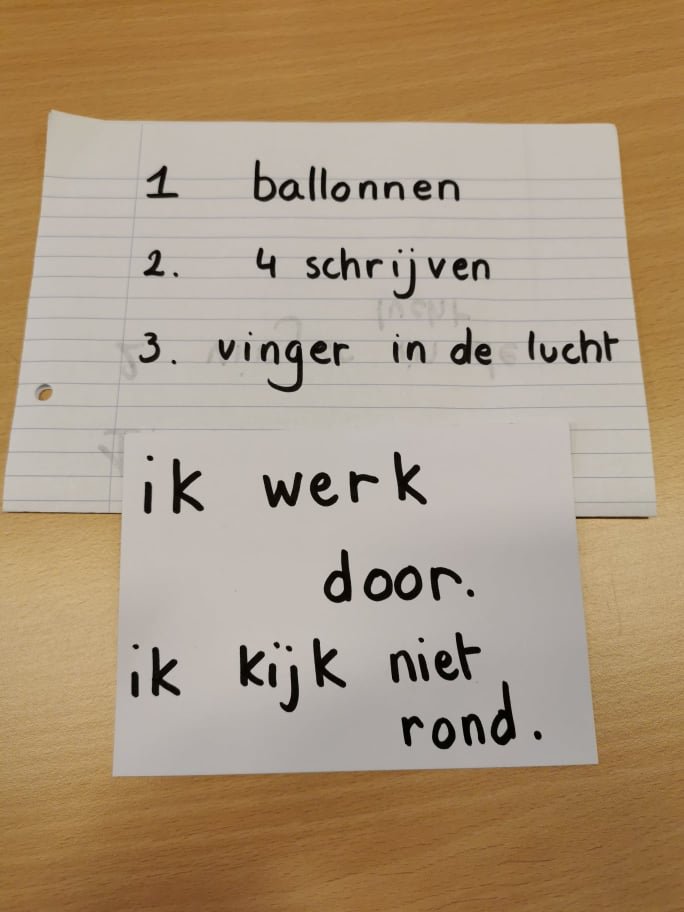 1 ballonnen
2. 4 schrijven
3. vinger in de lucht
ik werk
door.
ik kijk niet
rond.